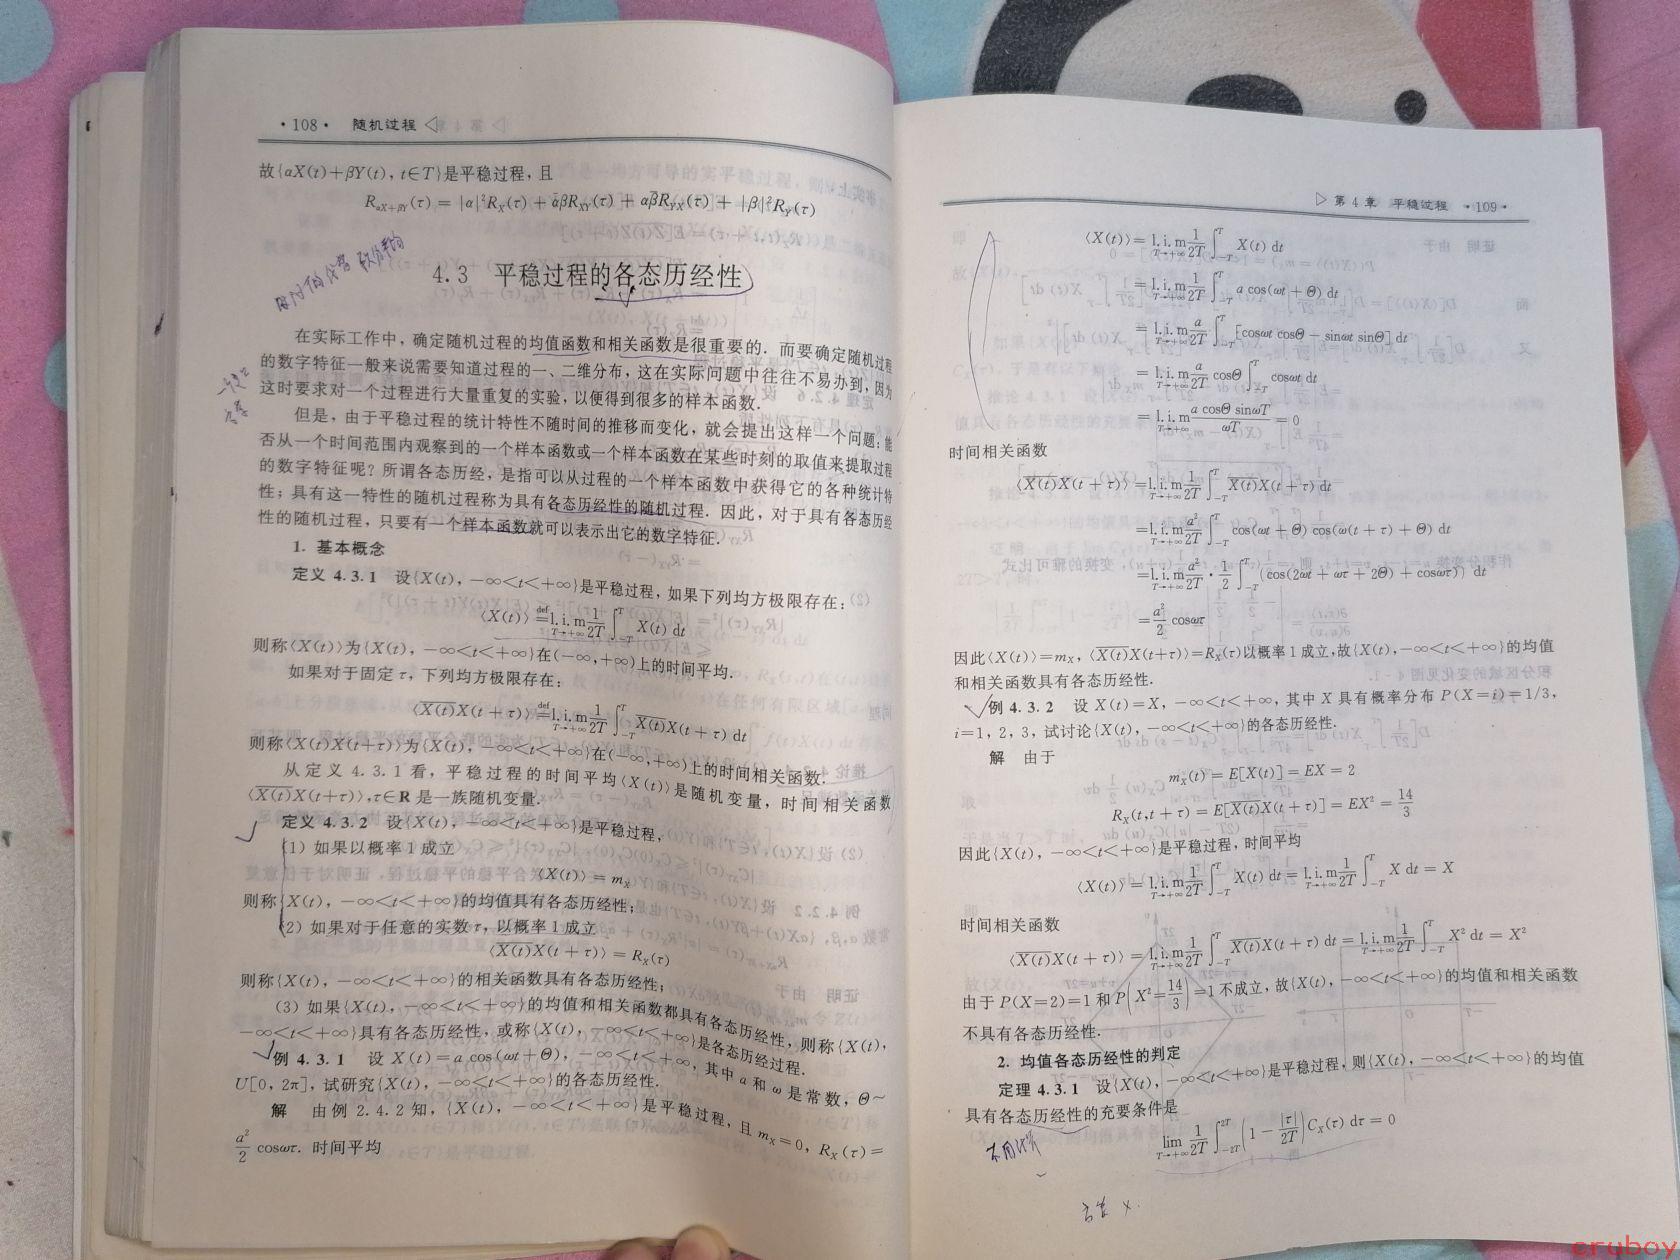 ·108· 随机过程
故{αX(t)+βY(t), t∈T}是平稳过程,且
R_{αX+βY}(τ) = |α|²R_X(τ) + ᾱβR_{XY}(τ) + αβ̄R_{YX}(τ) + |β|²R_Y(τ)
4.3 平稳过程的各态历经性
在实际工作中,确定随机过程的均值函数和相关函数是很重要的. 而要确定随机过程
的数字特征一般来说需要知道过程的一、二维分布,这在实际问题中往往不易办到,因为
这时要求对一个过程进行大量重复的实验,以便得到很多的样本函数.
但是,由于平稳过程的统计特性不随时间的推移而变化,就会提出这样一个问题:能
否从一个时间范围内观察到的一个样本函数或一个样本函数在某些时刻的取值来提取过程
的数字特征呢?所谓各态历经,是指可以从过程的一个样本函数中获得它的各种统计特
性;具有这一特性的随机过程称为具有各态历经性的随机过程. 因此,对于具有各态历经
性的随机过程,只要有一个样本函数就可以表示出它的数字特征.
1. 基本概念
定义 4.3.1 设{X(t), −∞<t<+∞}是平稳过程,如果下列均方极限存在:
⟨X(t)⟩ ≝ l.i.m_{T→+∞} 1/2T ∫_{−T}^{T} X(t) dt
则称⟨X(t)⟩为{X(t), −∞<t<+∞}在(−∞,+∞)上的时间平均.
如果对于固定 τ,下列均方极限存在:
⟨X̅(̅t̅)̅X(t+τ)⟩ ≝ l.i.m_{T→+∞} 1/2T ∫_{−T}^{T} X̅(̅t̅)̅X(t+τ) dt
则称⟨X̅(̅t̅)̅X(t+τ)⟩为{X(t), −∞<t<+∞}在(−∞,+∞)上的时间相关函数.
从定义 4.3.1 看,平稳过程的时间平均⟨X(t)⟩是随机变量,时间相关函数
⟨X̅(̅t̅)̅X(t+τ)⟩,τ∈R 是一族随机变量.
定义 4.3.2 设{X(t), −∞<t<+∞}是平稳过程,
(1) 如果以概率 1 成立
⟨X(t)⟩ = m_X
则称{X(t), −∞<t<+∞}的均值具有各态历经性;
(2) 如果对于任意的实数 τ,以概率 1 成立
⟨X̅(̅t̅)̅X(t+τ)⟩ = R_X(τ)
则称{X(t), −∞<t<+∞}的相关函数具有各态历经性;
(3) 如果{X(t), −∞<t<+∞}的均值和相关函数都具有各态历经性,则称{X(t),
−∞<t<+∞}具有各态历经性,或称{X(t), −∞<t<+∞}是各态历经过程.
例 4.3.1 设 X(t)=a cos(ωt+Θ), −∞<t<+∞,其中 a 和 ω 是常数,Θ~
U[0, 2π],试研究{X(t), −∞<t<+∞}的各态历经性.
解 由例 2.4.2 知,{X(t), −∞<t<+∞}是平稳过程,且 m_X=0, R_X(τ)=
a²/2 cosωτ. 时间平均
第 4 章 平稳过程 ·109·
⟨X(t)⟩ = l.i.m_{T→+∞} 1/2T ∫_{−T}^{T} X(t) dt
= l.i.m_{T→+∞} 1/2T ∫_{−T}^{T} a cos(ωt+Θ) dt
= l.i.m_{T→+∞} a/2T ∫_{−T}^{T} [cosωt cosΘ − sinωt sinΘ] dt
= l.i.m_{T→+∞} a/2T cosΘ ∫_{−T}^{T} cosωt dt
= l.i.m_{T→+∞} a cosΘ sinωT/ωT = 0
时间相关函数
⟨X̅(̅t̅)̅X(t+τ)⟩ = l.i.m_{T→+∞} 1/2T ∫_{−T}^{T} X̅(̅t̅)̅X(t+τ) dt
= l.i.m_{T→+∞} a²/2T ∫_{−T}^{T} cos(ωt+Θ) cos(ω(t+τ)+Θ) dt
= l.i.m_{T→+∞} a²/2T · 1/2 ∫_{−T}^{T} (cos(2ωt+ωτ+2Θ)+cosωτ)) dt
= a²/2 cosωτ
因此⟨X(t)⟩=m_X, ⟨X̅(̅t̅)̅X(t+τ)⟩=R_X(τ)以概率 1 成立,故{X(t), −∞<t<+∞}的均值
和相关函数具有各态历经性.
例 4.3.2 设 X(t)=X, −∞<t<+∞,其中 X 具有概率分布 P(X=i)=1/3,
i=1, 2, 3,试讨论{X(t), −∞<t<+∞}的各态历经性.
解 由于
m_X(t) = E[X(t)] = EX = 2
R_X(t,t+τ) = E[X̅(̅t̅)̅X(t+τ)] = EX² = 14/3
因此{X(t), −∞<t<+∞}是平稳过程,时间平均
⟨X(t)⟩ = l.i.m_{T→+∞} 1/2T ∫_{−T}^{T} X(t) dt = l.i.m_{T→+∞} 1/2T ∫_{−T}^{T} X dt = X
时间相关函数
⟨X̅(̅t̅)̅X(t+τ)⟩ = l.i.m_{T→+∞} 1/2T ∫_{−T}^{T} X̅(̅t̅)̅X(t+τ) dt = l.i.m_{T→+∞} 1/2T ∫_{−T}^{T} X² dt = X²
由于 P(X=2)=1 和 P(X²=14/3)=1 不成立,故{X(t), −∞<t<+∞}的均值和相关函数
不具有各态历经性.
2. 均值各态历经性的判定
定理 4.3.1 设{X(t), −∞<t<+∞}是平稳过程,则{X(t), −∞<t<+∞}的均值
具有各态历经性的充要条件是
lim_{T→+∞} 1/2T ∫_{−2T}^{2T} (1 − |τ|/2T) C_X(τ) dτ = 0
cruboy